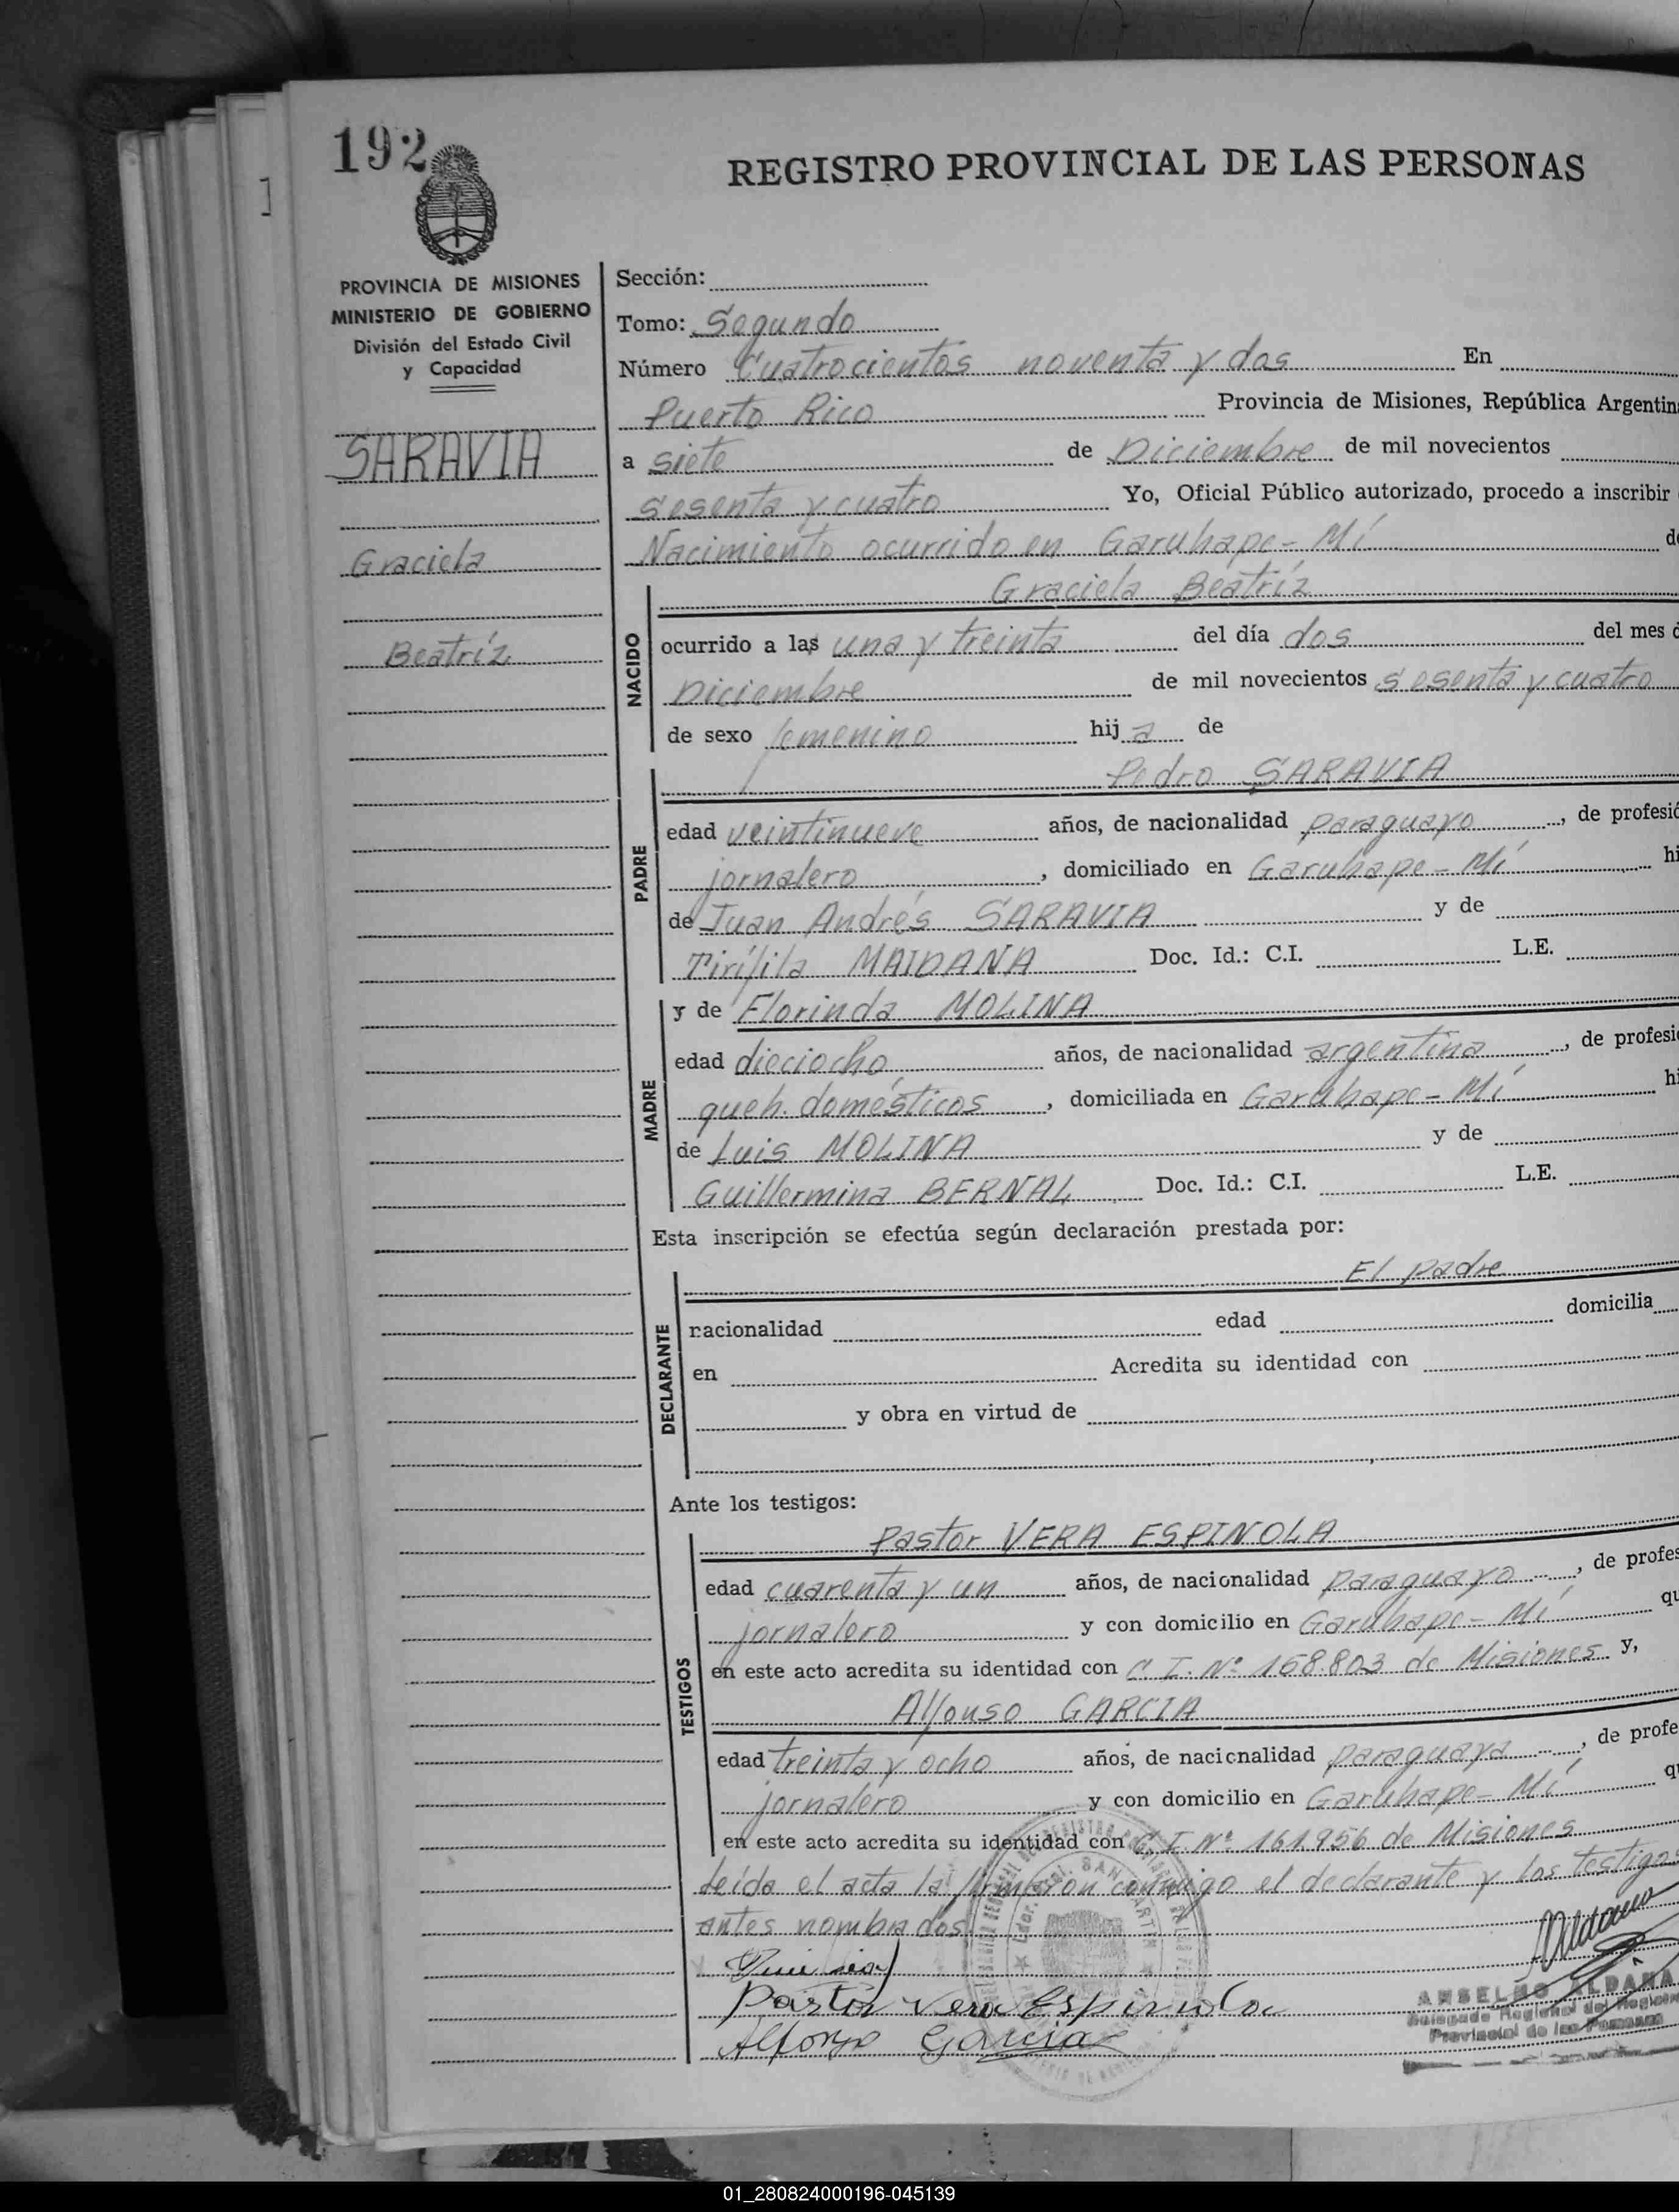 192
REGISTRO PROVINCIAL DE LAS PERSONAS
PROVINCIA DE MISIONES
MINISTERIO DE GOBIERNO
División del Estado Civil
y Capacidad
SARAVIA
Graciela
Beatríz
Sección:
Tomo: Segundo
Número Cuatrocientos noventa y dos En
Puerto Rico Provincia de Misiones, República Argentina
a siete de Diciembre de mil novecientos
sesenta y cuatro Yo, Oficial Público autorizado, procedo a inscribir
Nacimiento ocurrido en Garuhape-Mí de
NACIDO
Graciela Beatríz
ocurrido a las una y treinta del día dos del mes d
Diciembre de mil novecientos sesenta y cuatro
de sexo femenino hija de
PADRE
Pedro SARAVIA
edad veintinueve años, de nacionalidad paraguayo, de profesió
jornalero, domiciliado en Garuhape-Mí hi
de Juan Andrés SARAVIA y de
Tirífila MAIDANA Doc. Id.: C.I. L.E.
MADRE
y de Florinda MOLINA
edad dieciocho años, de nacionalidad argentina, de profesi
queh. domésticos, domiciliada en Garuhape-Mí hi
de Luis MOLINA y de
Guillermina BERNAL Doc. Id.: C.I. L.E.
Esta inscripción se efectúa según declaración prestada por:
DECLARANTE
El padre
nacionalidad edad domicilia
en Acredita su identidad con
y obra en virtud de
Ante los testigos:
TESTIGOS
Pastor VERA ESPINOLA
edad cuarenta y un años, de nacionalidad paraguayo, de profes
jornalero y con domicilio en Garuhape-Mí qu
en este acto acredita su identidad con C.I. Nº 168.803 de Misiones y,
Alfonso GARCIA
edad treinta y ocho años, de nacionalidad paraguaya, de profe
jornalero y con domicilio en Garuhape-Mí qu
en este acto acredita su identidad con C.I. Nº 161.956 de Misiones
Leída el acta la firmaron conmigo el declarante y los testigos
antes nombrados
Pastor Vera Espinola
Alfonzo Garcia
ANSELMO ALDANA
Delegado Regional del Registro
Provincial de las Personas
01_280824000196-045139